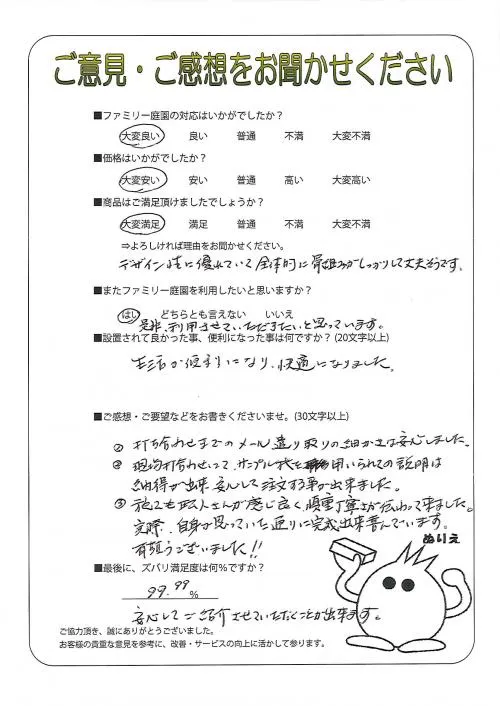 ご意見・ご感想をお聞かせください
■ファミリー庭園の対応はいかがでしたか？
大変良い 良い 普通 不満 大変不満
■価格はいかがでしたか？
大変安い 安い 普通 高い 大変高い
■商品はご満足頂けましたでしょうか？
大変満足 満足 普通 不満 大変不満
⇒よろしければ理由をお聞かせください。
デザイン性に優れていて全体的に骨組みがしっかりして丈夫そうです。
■またファミリー庭園を利用したいと思いますか？
はい どちらとも言えない いいえ
是非、利用させていただきたいと思っています。
■設置されて良かった事、便利になった事は何ですか？(20文字以上)
生活が便利になり、快適になりました。
■ご感想・ご要望などをお書きくださいませ。(30文字以上)
① 打ち合わせまでのメール遣り取りの細かさは安心しました。
② 現場打合わせにて、サンプル 用いられての説明は
納得が出来、安心して注文する事が出来ました。
③ 施工も職人さんが感じ良く、慎重丁寧さが伝わって来ました。
実際、自身が思っていた通りに完成出来喜んでいます。
有難うございました!!
ぬりえ
■最後に、ズバリ満足度は何％ですか？
99.99%
安心してご紹介させていただくことが出来ます。
ご協力頂き、誠にありがとうございました。
お客様の貴重な意見を参考に、改善・サービスの向上に活かして参ります。